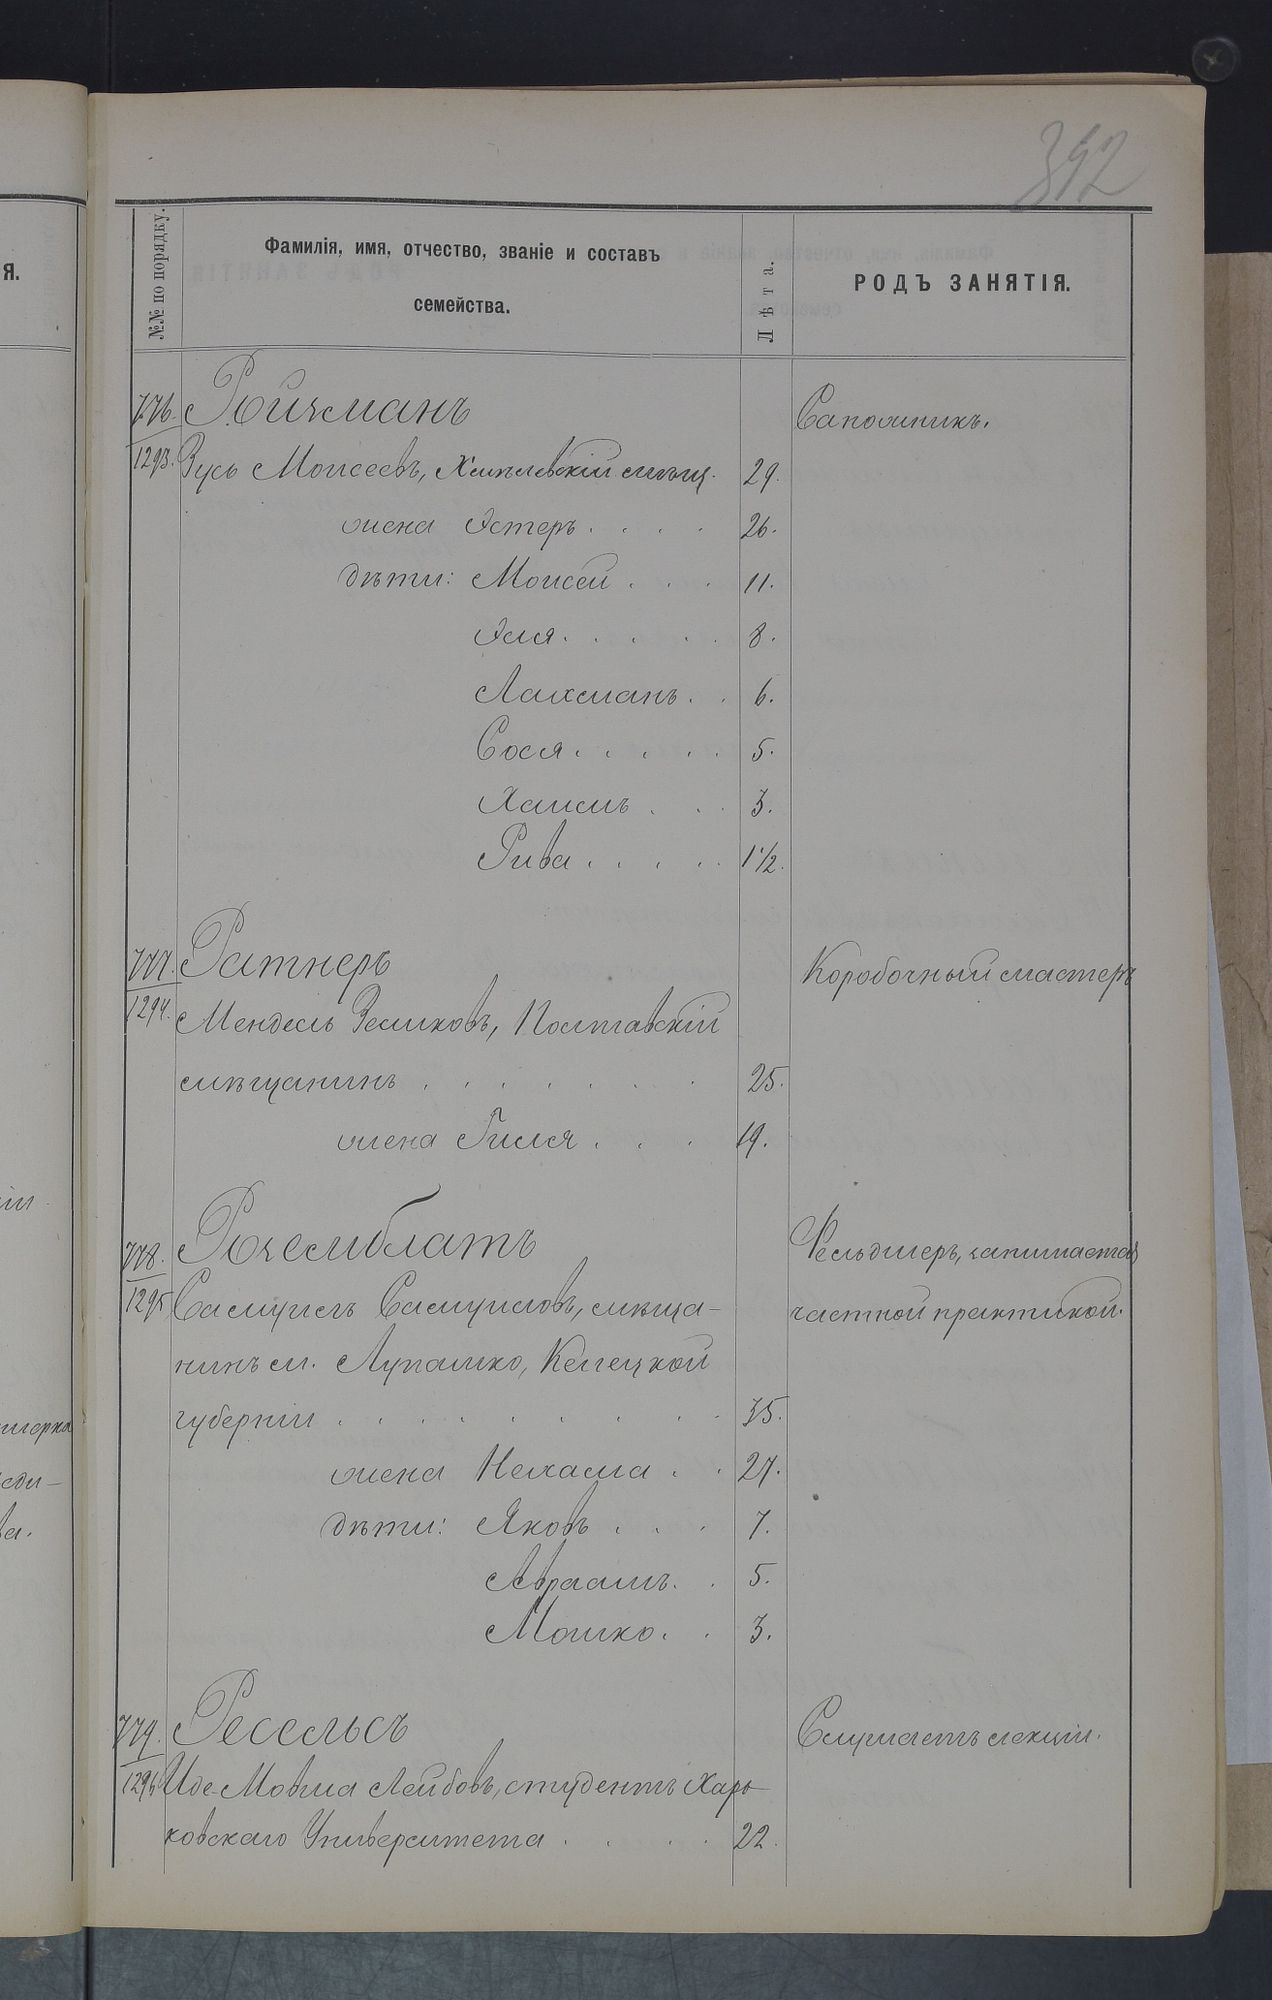 392
№№ по порядку.
Фамилія, имя, отчество, званіе и составъ
семейства.
Лѣта.
РОДЪ ЗАНЯТІЯ.
Я.
776. Ройчманъ Сапожникъ.
1293. Зусь Моисеевъ, мѣщ. 29.
жена Эстеръ . . . . 26.
дѣти: Моисей . . . 11.
Эля . . . . . 8.
Лахманъ . . 6.
Сося . . . . . 5.
Хаимъ . . . 3.
Рива . . . . . 1 1/2.
777. Ратнеръ Коробочный мастеръ
1294. Мендель Зеликовъ, Полтавскій
мѣщанинъ . . . . . . . 25.
жена Гиля . . . 19.
778. Роземблатъ Фельдшеръ, занимается
1295 Самуилъ Самуиловъ, мѣща- частной практикой.
нинъ м. Лупашко, Келецкой
губерніи . . . . . . . . 35.
жена Нехама . . 27.
дѣти: Яковъ . . . 7.
Авраамъ . . 5.
Мошко . . 3.
779. Ресельсъ Слушаетъ лекціи.
1296 Иде-Мовша Лейбовъ, студентъ Харь-
ковскаго Университета . . . . 22.